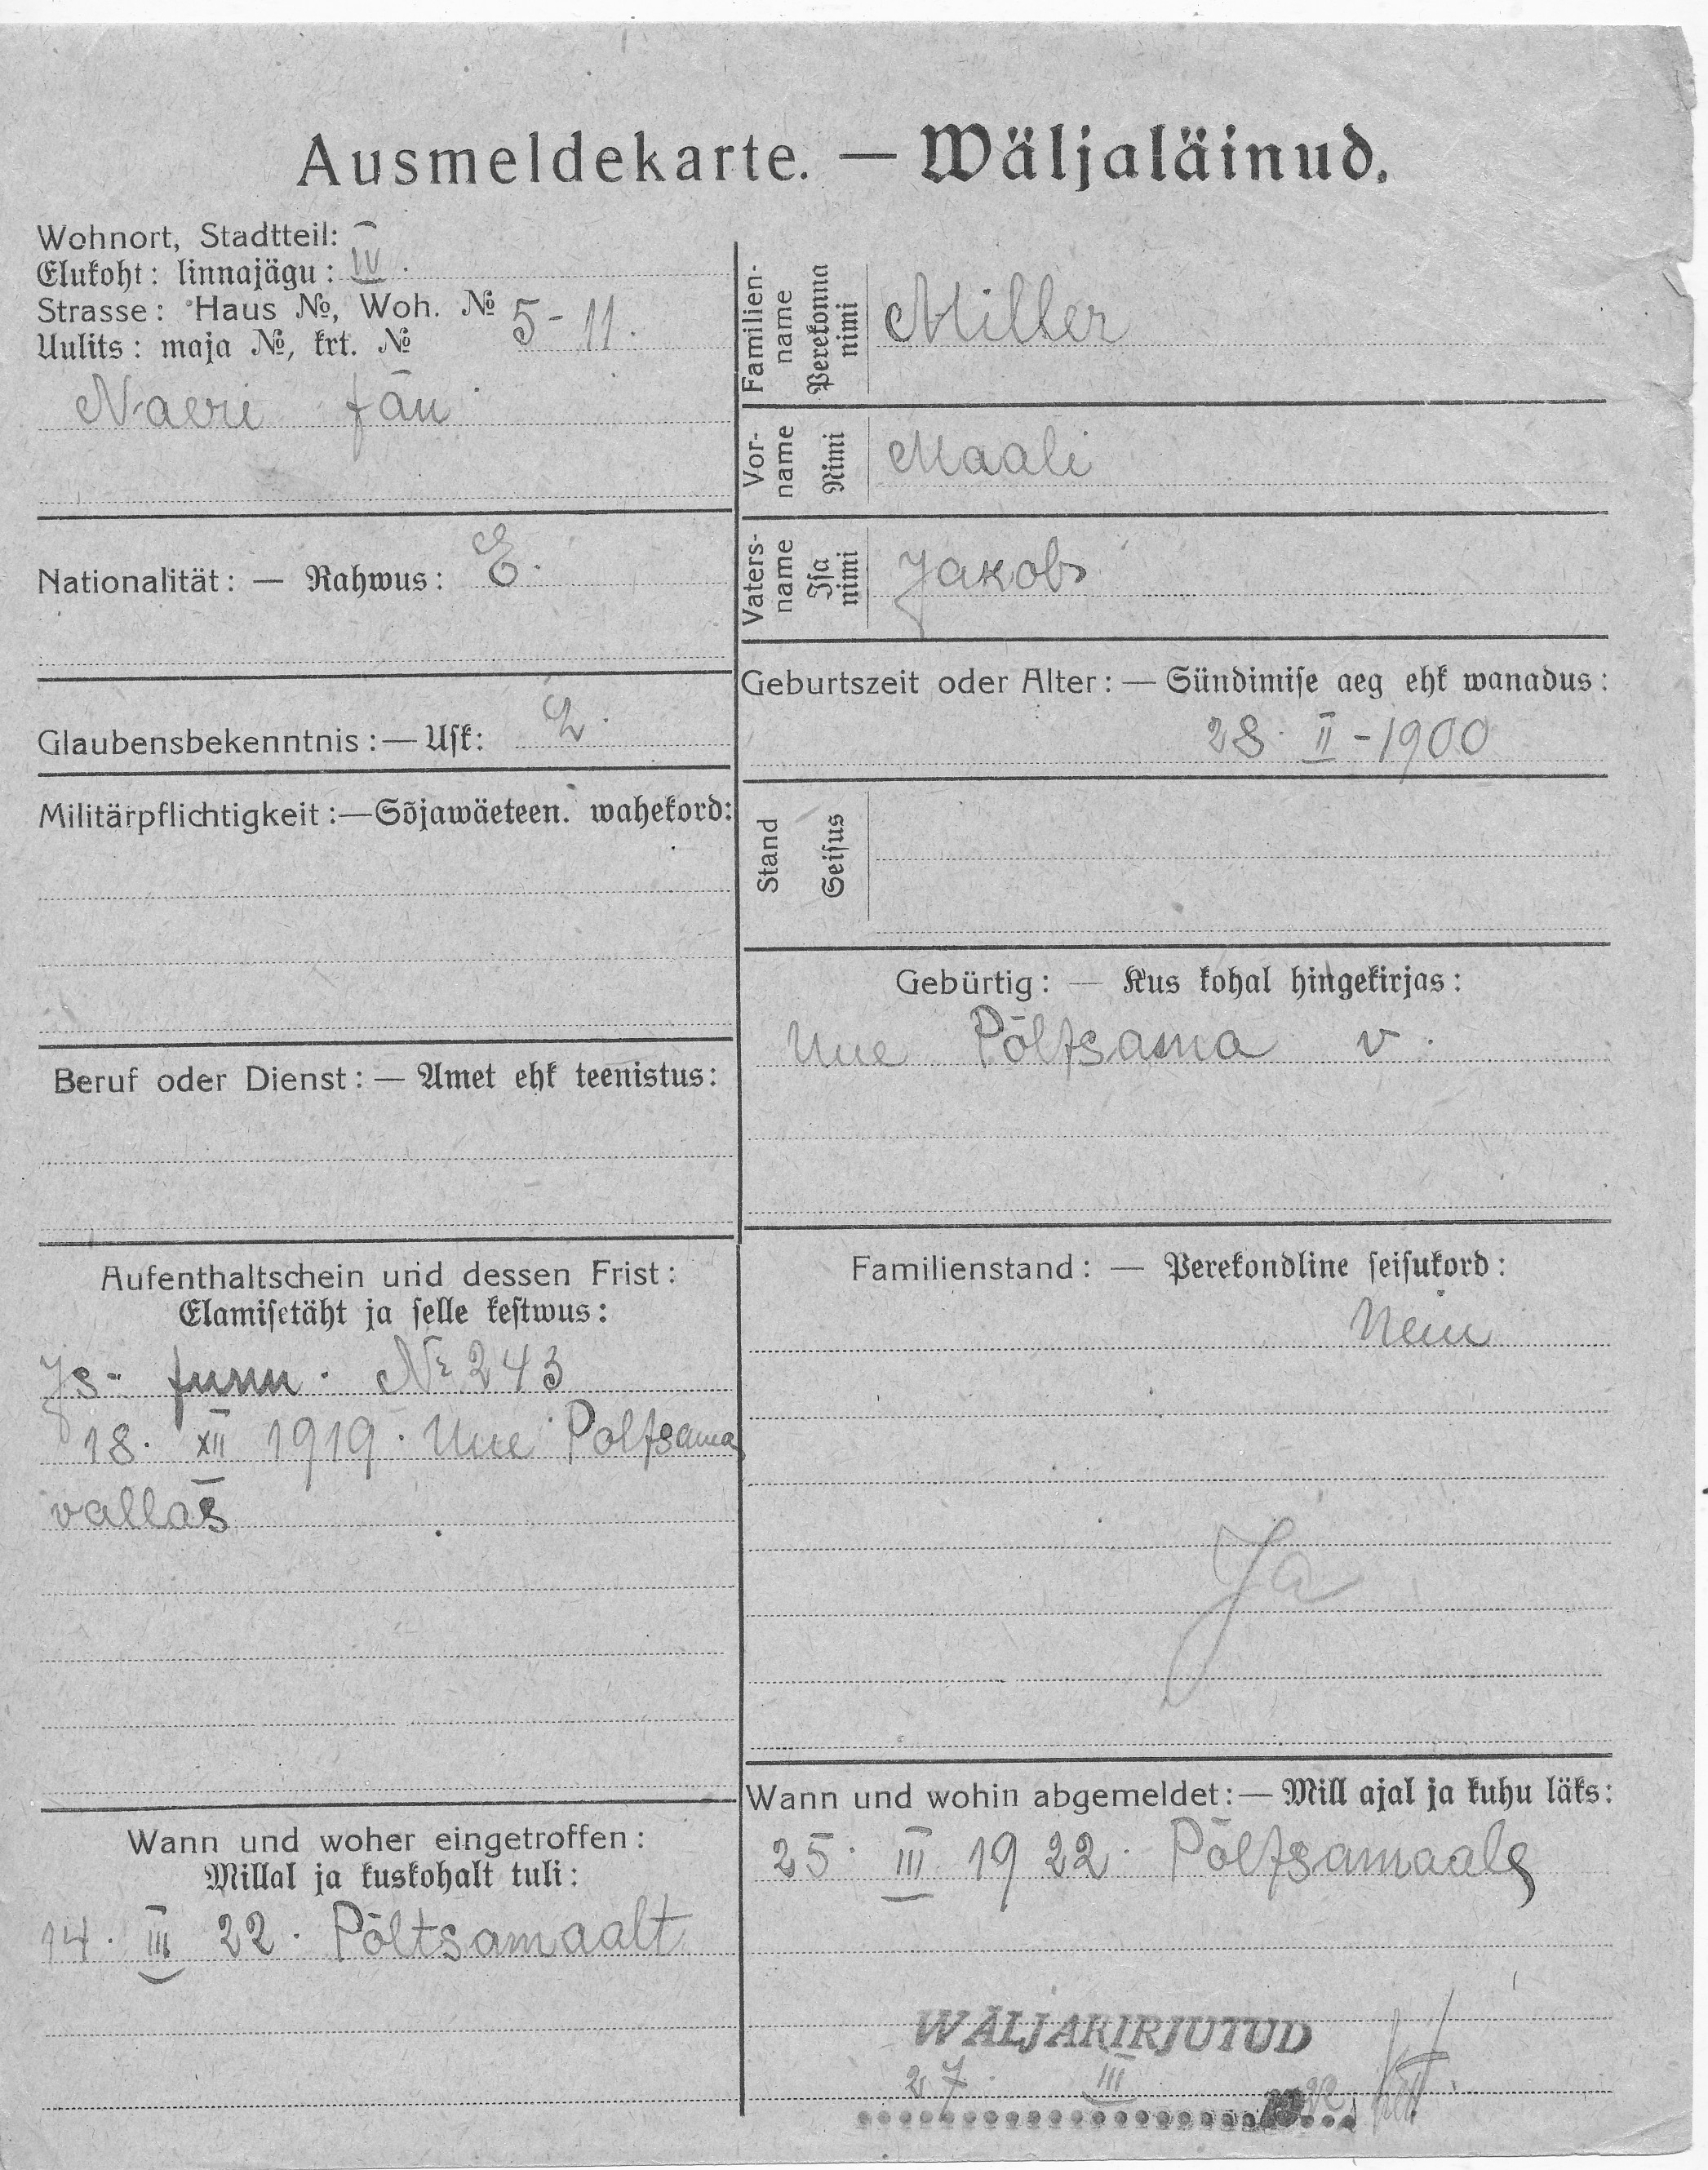 Ausmeldekarte. — Wäljaläinud.
Wohnort, Stadtteil:
Elukoht: linnajägu: IV.
Strasse: Haus №, Woh. №
Uulits: maja №, krt. № 5-11.
Naeri tän
Nationalität: — Rahwus: E.
Glaubensbekenntnis: — Usk: L.
Militärpflichtigkeit: — Sõjawäeteen. wahekord:
Beruf oder Dienst: — Amet ehk teenistus:
Aufenthaltschein und dessen Frist:
Elamisetäht ja selle kestwus:
Is. tunn. № 243
18. XII 1919. Uue Poltsama
vallas
Wann und woher eingetroffen:
Millal ja kuskohalt tuli:
14. III 22. Põltsamaalt
Familien-
name
Perekonna
nimi
Miller
Vor-
name
Nimi
Maali
Vaters-
name
Isa
nimi
Jakob
Geburtszeit oder Alter: — Sündimise aeg ehk wanadus:
28. II-1900
Stand
Seisus
Gebürtig: — Kus kohal hingekirjas:
Uue Põltsama v.
Familienstand: — Perekondline seisukord:
Neiu
Ja
Wann und wohin abgemeldet: — Mill ajal ja kuhu läks:
25. III 1922. Põltsamaale
WÄLJAKIRJUTUD
27. III